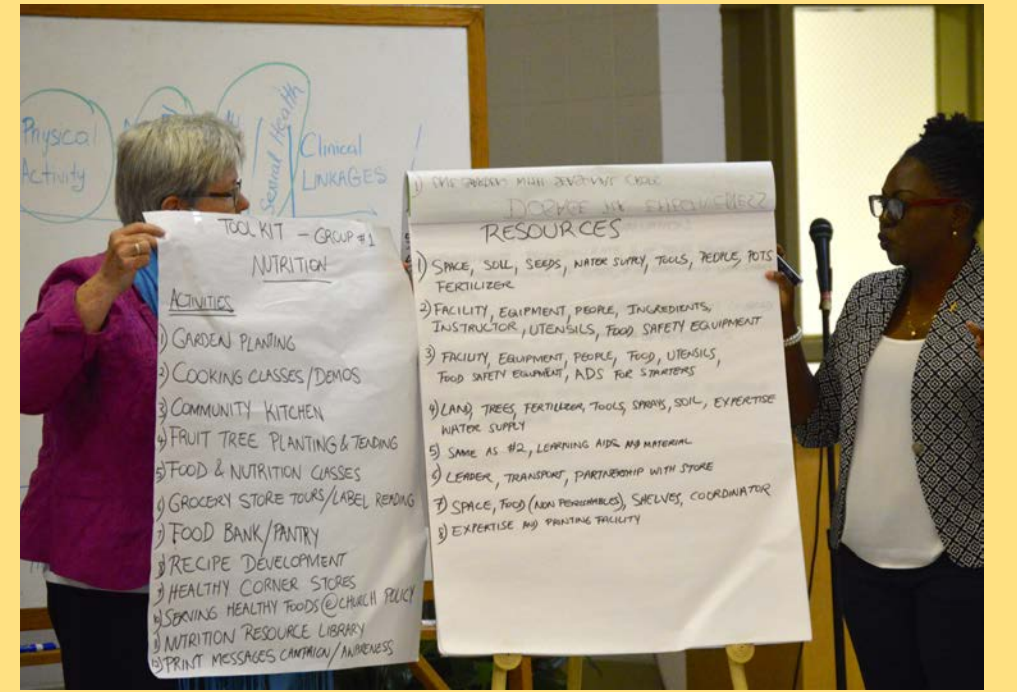 Physical
Activity
Sexual Health
Clinical
LINKAGES
TOOL KIT - GROUP #1
NUTRITION
ACTIVITIES
1) GARDEN PLANTING
2) COOKING CLASSES/DEMOS
3) COMMUNITY KITCHEN
4) FRUIT TREE PLANTING & TENDING
5) FOOD & NUTRITION CLASSES
6) GROCERY STORE TOURS/LABEL READING
7) FOOD BANK/PANTRY
8) RECIPE DEVELOPMENT
9) HEALTHY CORNER STORES
10) SERVING HEALTHY FOODS @ CHURCH POLICY
11) NUTRITION RESOURCE LIBRARY
12) PRINT MESSAGES CAMPAIGN/AWARENESS
RESOURCES
1) SPACE, SOIL, SEEDS, WATER SUPPLY, TOOLS, PEOPLE, POTS
FERTILIZER
2) FACILITY, EQUIPMENT, PEOPLE, INGREDIENTS,
INSTRUCTOR, UTENSILS, FOOD SAFETY EQUIPMENT
3) FACILITY, EQUIPMENT, PEOPLE, FOOD, UTENSILS,
FOOD SAFETY EQUIPMENT, ADS FOR STARTERS
4) LAND, TREES, FERTILIZER, TOOLS, SPRAYS, SOIL, EXPERTISE
WATER SUPPLY
5) SAME AS #2, LEARNING AIDS AND MATERIAL
6) LEADER, TRANSPORT, PARTNERSHIP WITH STORE
7) SPACE, FOOD (NON PERISHABLES), SHELVES, COORDINATOR
8) EXPERTISE AND PRINTING FACILITY